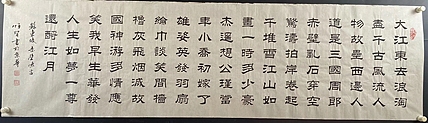 大江東去浪淘
盡千古風流人
物故壘西邊人
道是三國周郎
赤壁亂石穿空
驚濤拍岸卷起
千堆雪江山如
畫一時多少豪
杰遥想公瑾當
年小喬初嫁了
雄姿英發羽扇
綸巾談笑間檣
櫓灰飛烟滅故
國神游多情應
笑我早生華發
人生如夢一尊
還酹江月
蘇東坡赤壁懷古